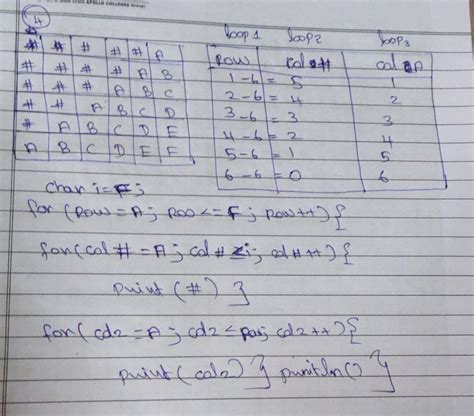 4
loop1 loop2 loop3
# # # # # A
# # # # A B
# # # A B C
# # A B C D
# A B C D E
A B C D E F
Row col# colA
1-6 = 5 1
2-6 = 4 2
3-6 = 3 3
4-6 = 2 4
5-6 = 1 5
6-6 = 0 6
char i=F;
for (row=A; roo<=F; row++) {
for(col# =A; col# i; col#++) {
print (#) }
for(col2 =A; col2 ≤ row; col2++){
print(col2) } println() }